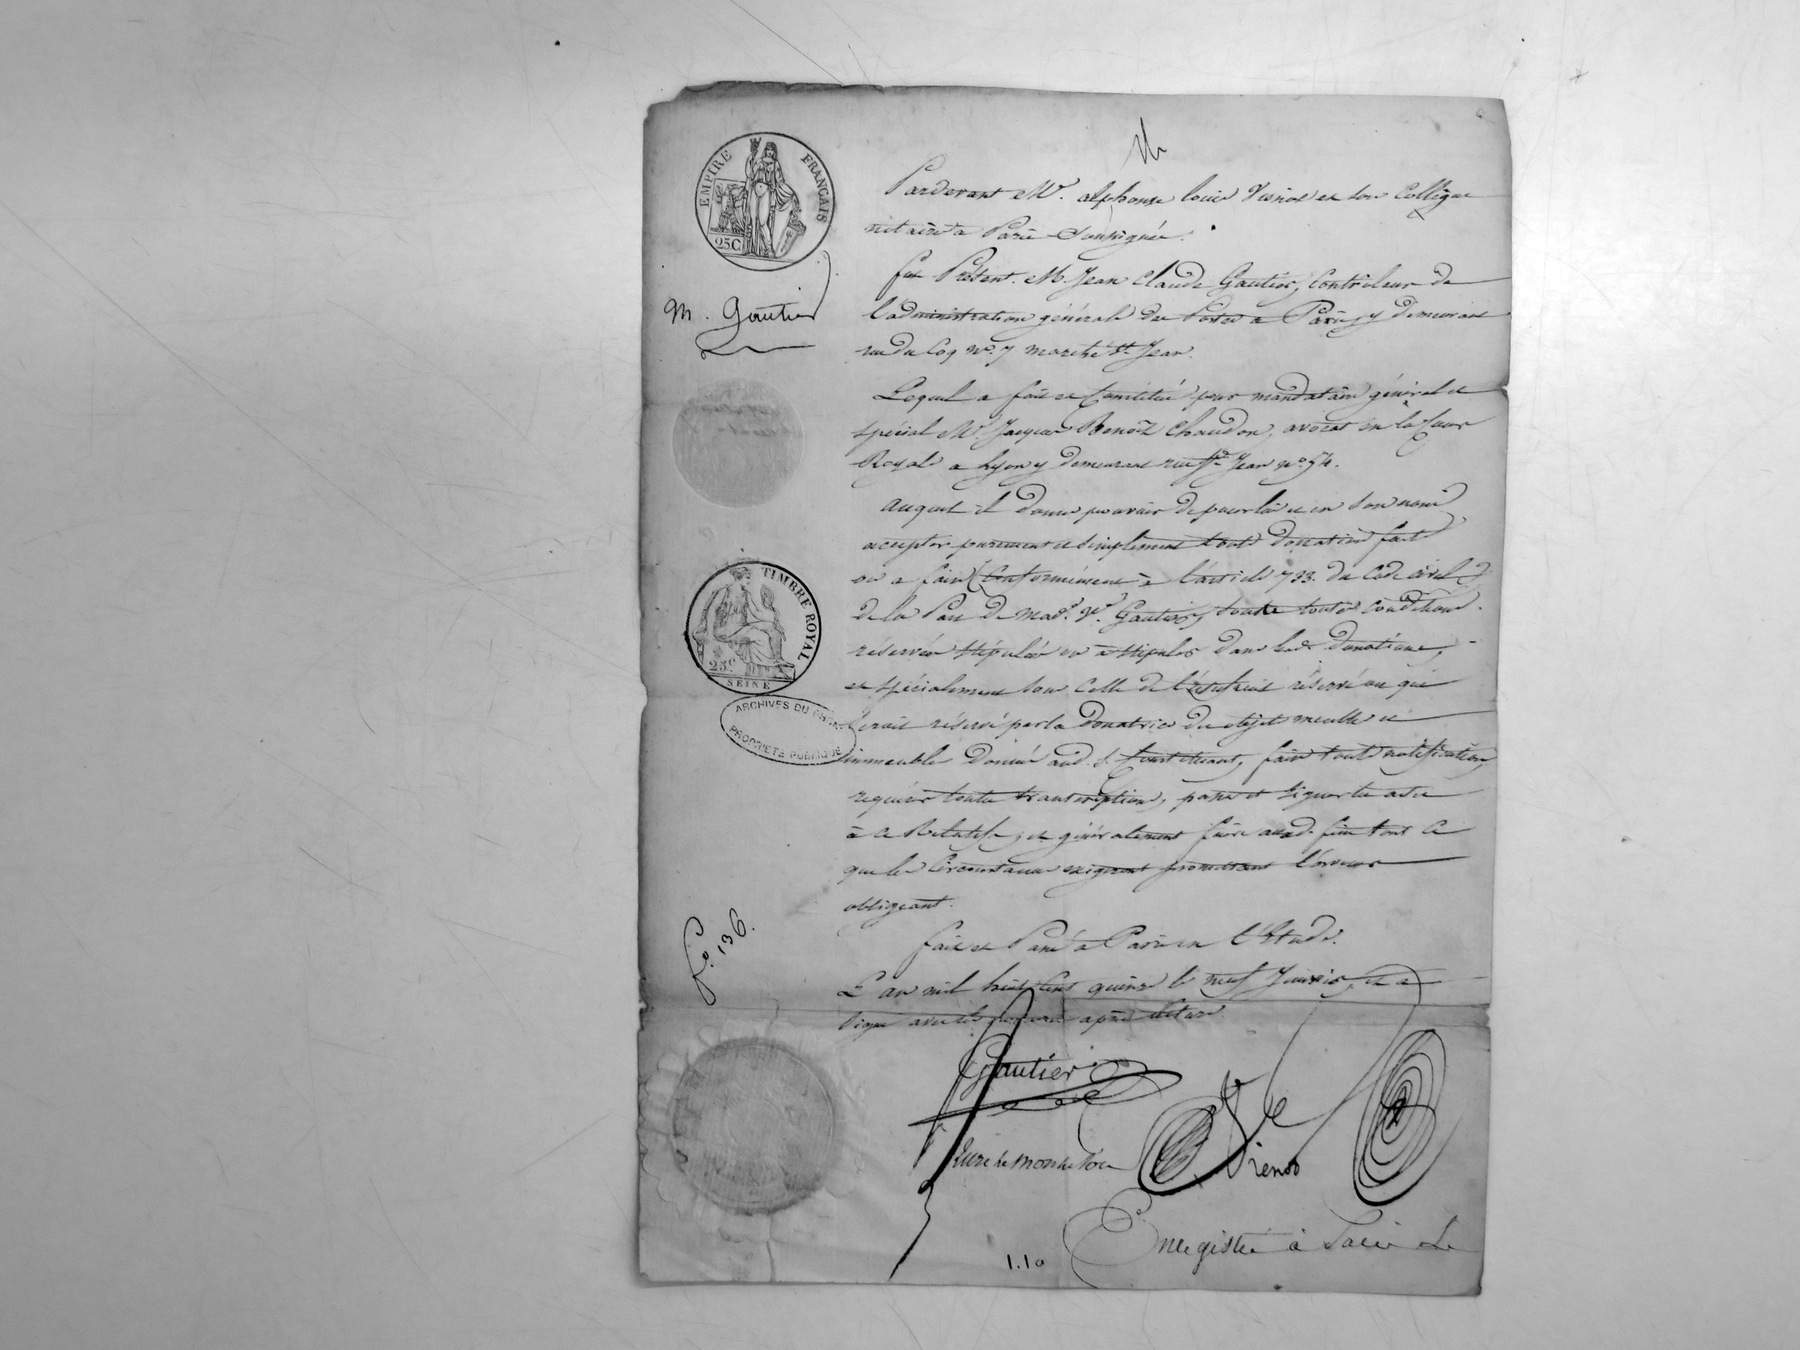 EMPIRE FRANÇAIS
25C
M. Gautier
TIMBRE ROYAL
25c
SEINE
ARCHIVES DU
PROPRIÉTÉ PUBLIQUE
fo. 136.
Pardevant Me. alphonse louis Vienot et son Collègue
notaires à Paris Soussignés.
fut Présent. M. Jean Claude Gautier, Contrôleur de
l'administration générale des Postes a Paris, y demeurant
rue du Coq no. 7 marché St. Jean.
Lequel a fait et Constitué pour mandataire général et
spécial Me. Jacques Benoît Chaudon, avocat en la Cour
Royale a Lyon y demeurant rue St. Jean no. 54.
auquel il donne pouvoir de pour lui et en son nom
accepter purement et simplement toute donation faite
ou a faire Conformément à l'article 733. du Code civil
de la Part de Made. Ve. Gautier, toutes conditions
réservées stipulées ou a stipuler dans donations,
et spécialement sous Celle de l'usufruit réservé ou qui
serait réservé par la donatrice des objets meubles et
immeubles Donnés aud. S. Constituant, faire toute notification,
requérir toute transcription, passer et signer tous actes
à ce Relatifs, et généralement faire auxd. fins tout Ce
que les Circonstances exigeront promettant l'avouer
obligeant.
fait et Passé a Paris en l'Etude.
L'an mil huit Cent quinze le neuf Janvier, et a
signé avec les notaires après lecture.
Gautier
Vienot
1.10
Enregistré à Paris Le